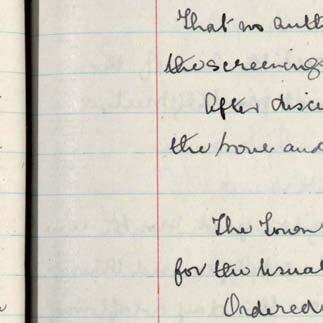 That no auth
the screenings
After discu
the
and
The Town
for the usual
Ordered